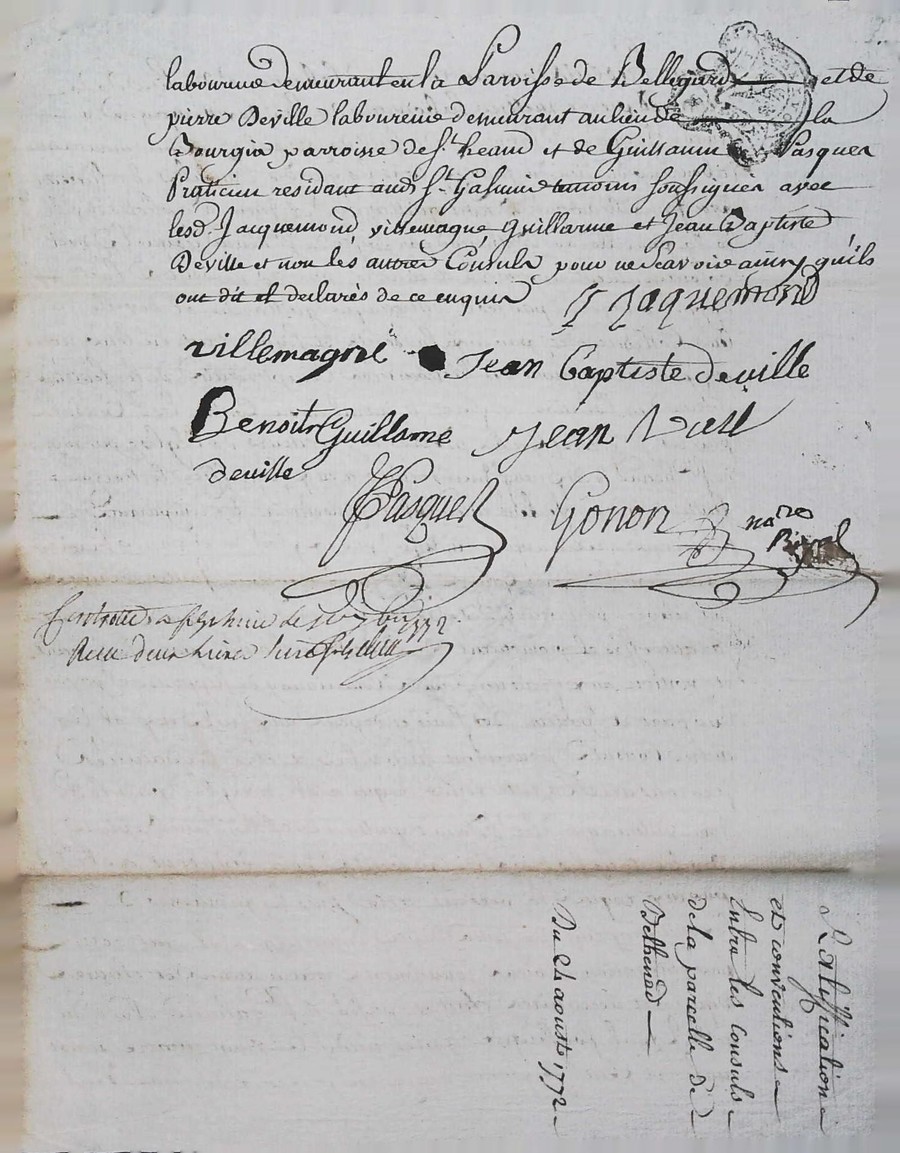 laboureur demeurant en la Paroisse de Bellegarde et de
pierre Deville laboureur demeurant au lieu de la
parroisse de St. heand et de Guillaume Pasquer
Praticien residant aud St. Galmier temoins soussignes avec
lesd. Jacquemond villemagne guillarme et Jean Baptiste
Deville et non les autres Consuls pour ne Scavoir ainsy quils
ont dit et declarés de ce enquis Jaquemond
villemagne Jean Baptiste deville
Benoit Guillome Jean
deville
Pasquer Gonon nore
Royal
de 1772
Deux Livres
Ratiffication
et conventions
Entre les consuls
de la parcelle de
Du aoust 1772